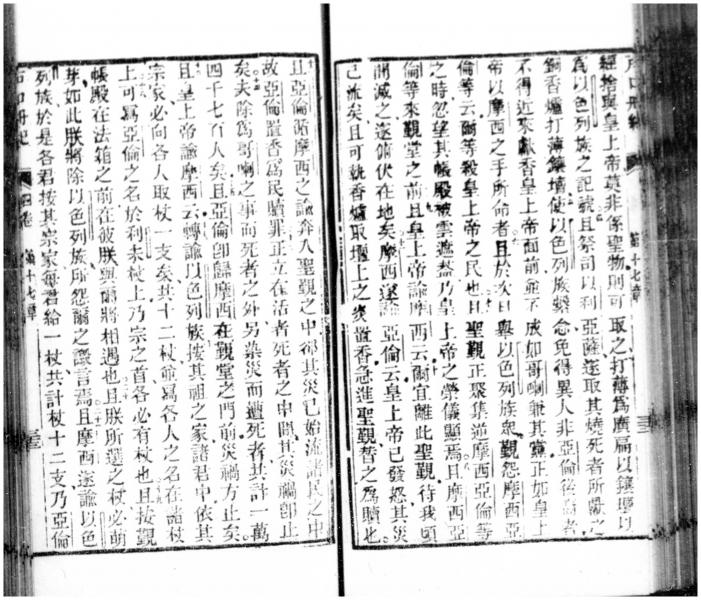 戶口冊紀
第十七章
經捨與皇上帝莫非係聖物則可取之打薄爲廣扁以鑲壇以
爲以色列族之記號且祭司以利亞薩遂取其燒死者所獻之
銅香爐打薄鑲壇使以色列族繫念免得異人非亞倫後裔者
不得近來獻香皇上帝面前並不成如哥喇兼其黨正如皇上
帝以摩西之手所命者且於次日與以色列族眾覲怨摩西亞
倫等云爾等殺皇上帝之民也且聖覲正聚集逆摩西亞倫等
之時忽望其帳殿被雲遮蓋乃皇上帝之榮儀顯焉且摩西亞
倫等來覲堂之前且皇上帝諭摩西云爾宜離此聖覲待我頃
間滅之遂俯伏在地矣摩西遂諭亞倫云皇上帝已發怒其災
已流矣且可執香爐取壇上之炎置香急進聖覲替之爲贖也
且亞倫始摩西之諭奔入聖覲之中卻其災已始流諸民之中
故亞倫置香爲民贖罪正立在活者死者之中間其災禍卽止
矣夫除爲哥喇之事而死者之外另染災而遭死者共計一萬
四千七百人矣且亞倫卽歸摩西在覲堂之門前災禍方止矣
且皇上帝諭摩西云轉諭以色列族按其祖之家諸君中依其
宗家必向各人取杖一支矣共十二杖並寫各人之名在諸杖
上可寫亞倫之名於利未杖上乃宗之首各必有杖也且按覲
帳殿在法箱之前在彼朕與爾將相遇也且朕所選之杖必萌
芽如此朕將除以色列族所怨爾之譏言焉且摩西遂諭以色
列族於是各君按其宗家每君給一杖共計杖十二支乃亞倫
戶口冊紀
四卷
第十七章